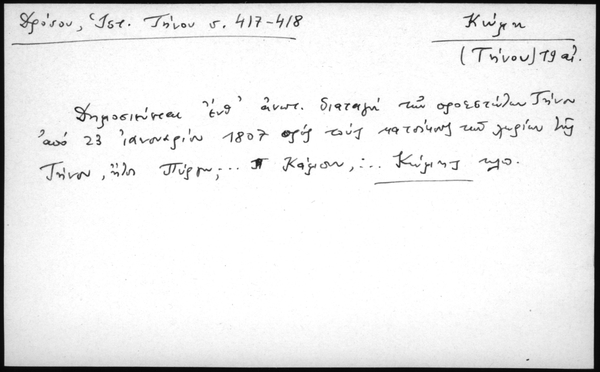 Δρόσου, Ἱστ. Τήνου σ. 417-418
Κώμη
(Τήνου) 19 αἰ.
Δημοσιεύεται ἐνθ' ἀνωτ. διαταγή τῶν προεστώτων Τήνου
ἀπό 23 ἰανουαρίου 1807 πρός τούς κατοίκους τῶν χωρίων τῆς
Τήνου, ἤτοι Πύργου,... Κάμπου,... Κώμης κλπ.